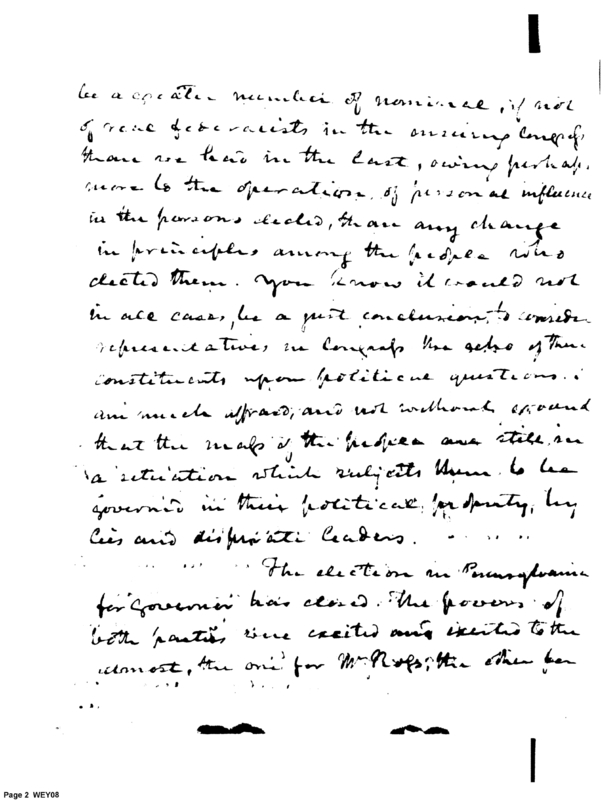 be a greater number of nominal, if not
of real federalists in the ensuing Congress
than we had in the last, owing perhaps
more to the operation of personal influence
in the persons elected, than any change
in principles among the people who
elected them. You know it would not
in all cases, be a just conclusion, to consider
representatives in Congress the echo of their
constituents upon political questions. i
am much afraid, and not without ground
that the mass of the people are still in
a situation which subjects them to be
governed in their political, by
lies and leaders.
The election in Pennsylvania
for Governor has closed. The powers of
both parties were excited and exerted to the
utmost, the one for Mr. Ross, the other for
Page 2 WEY08